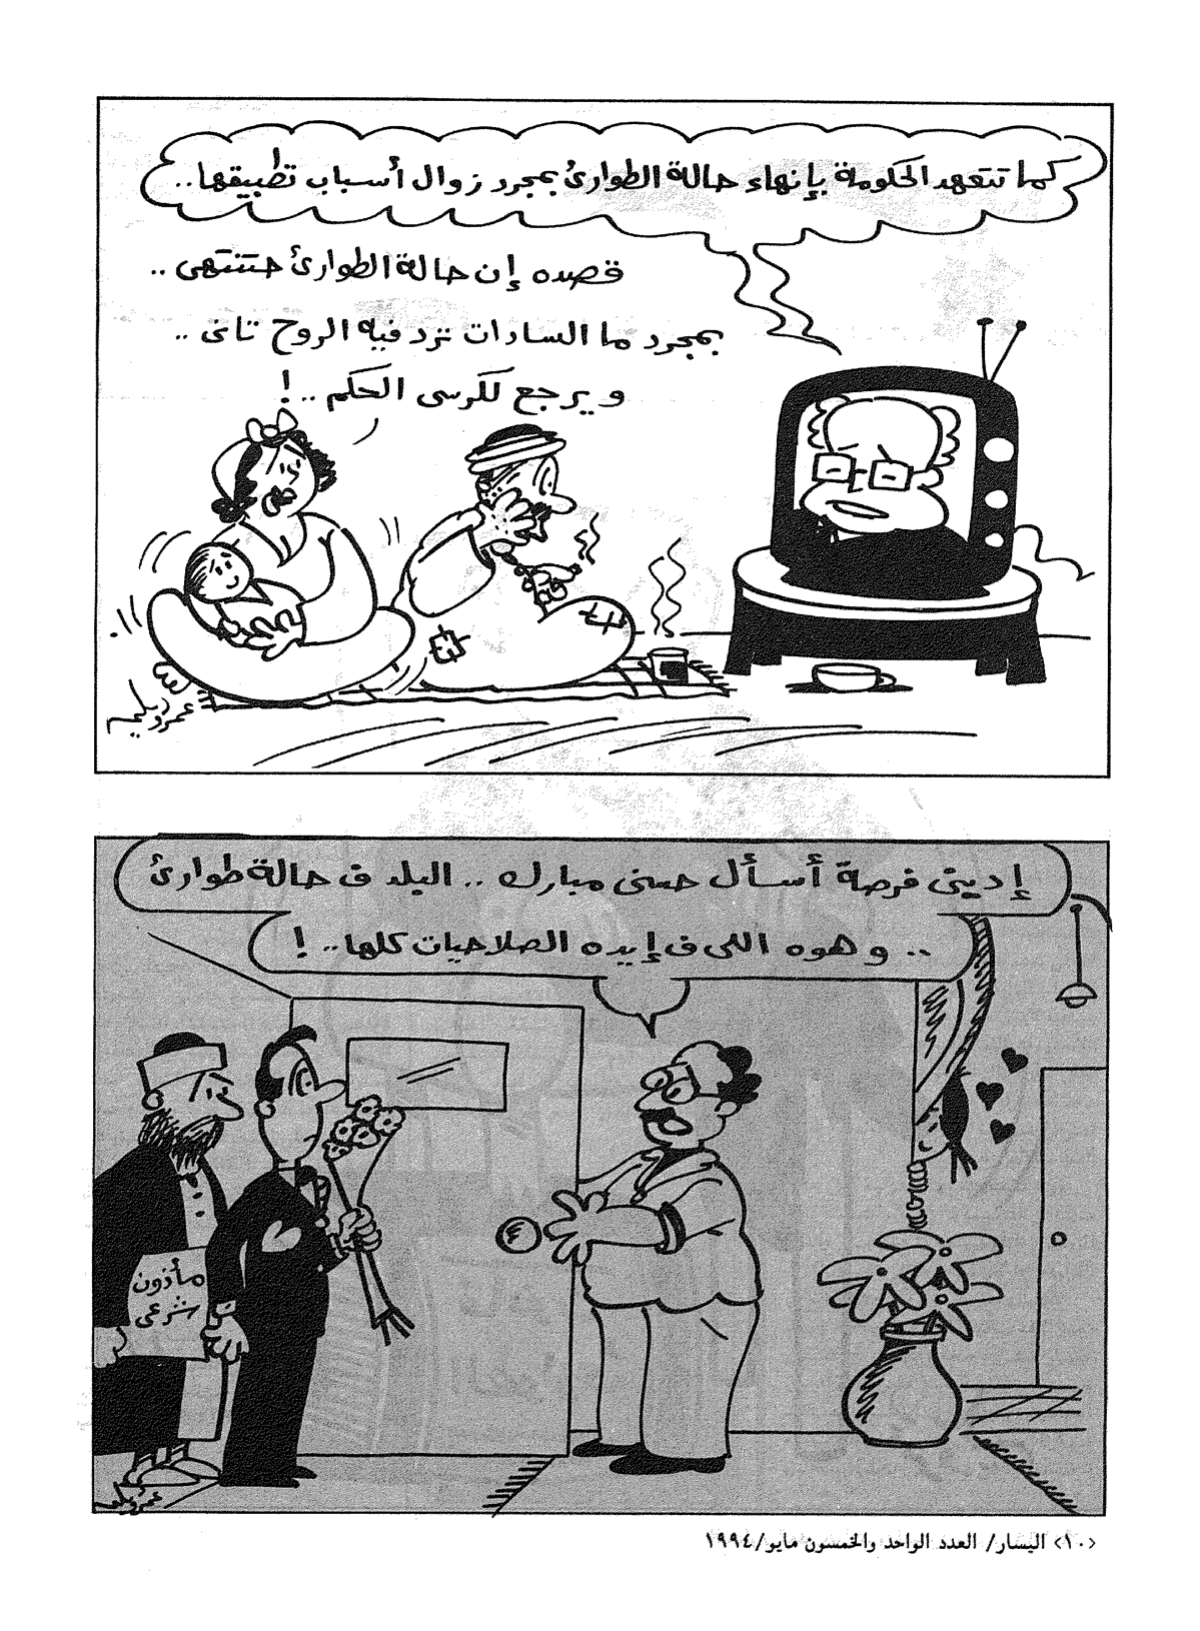 كما تتعهد الحكومة بإنهاء حالة الطوارئ بمجرد زوال أسباب تطبيقها..
قصده إن حالة الطوارئ حتنتهى ..
بمجرد ما السادات ترد فيه الروح تانى ..
و يرجع لكرسى الحكم ..!
عمرو سليم
إدينى فرصة أسأل حسنى مبارك .. البلد ف حالة طوارئ
.. و هوه اللى ف إيده الصلاحيات كلها..!
مأذون
شرعى
عمرو سليم
<١٠> اليسار/ العدد الواحد والخمسون مايو/١٩٩٤